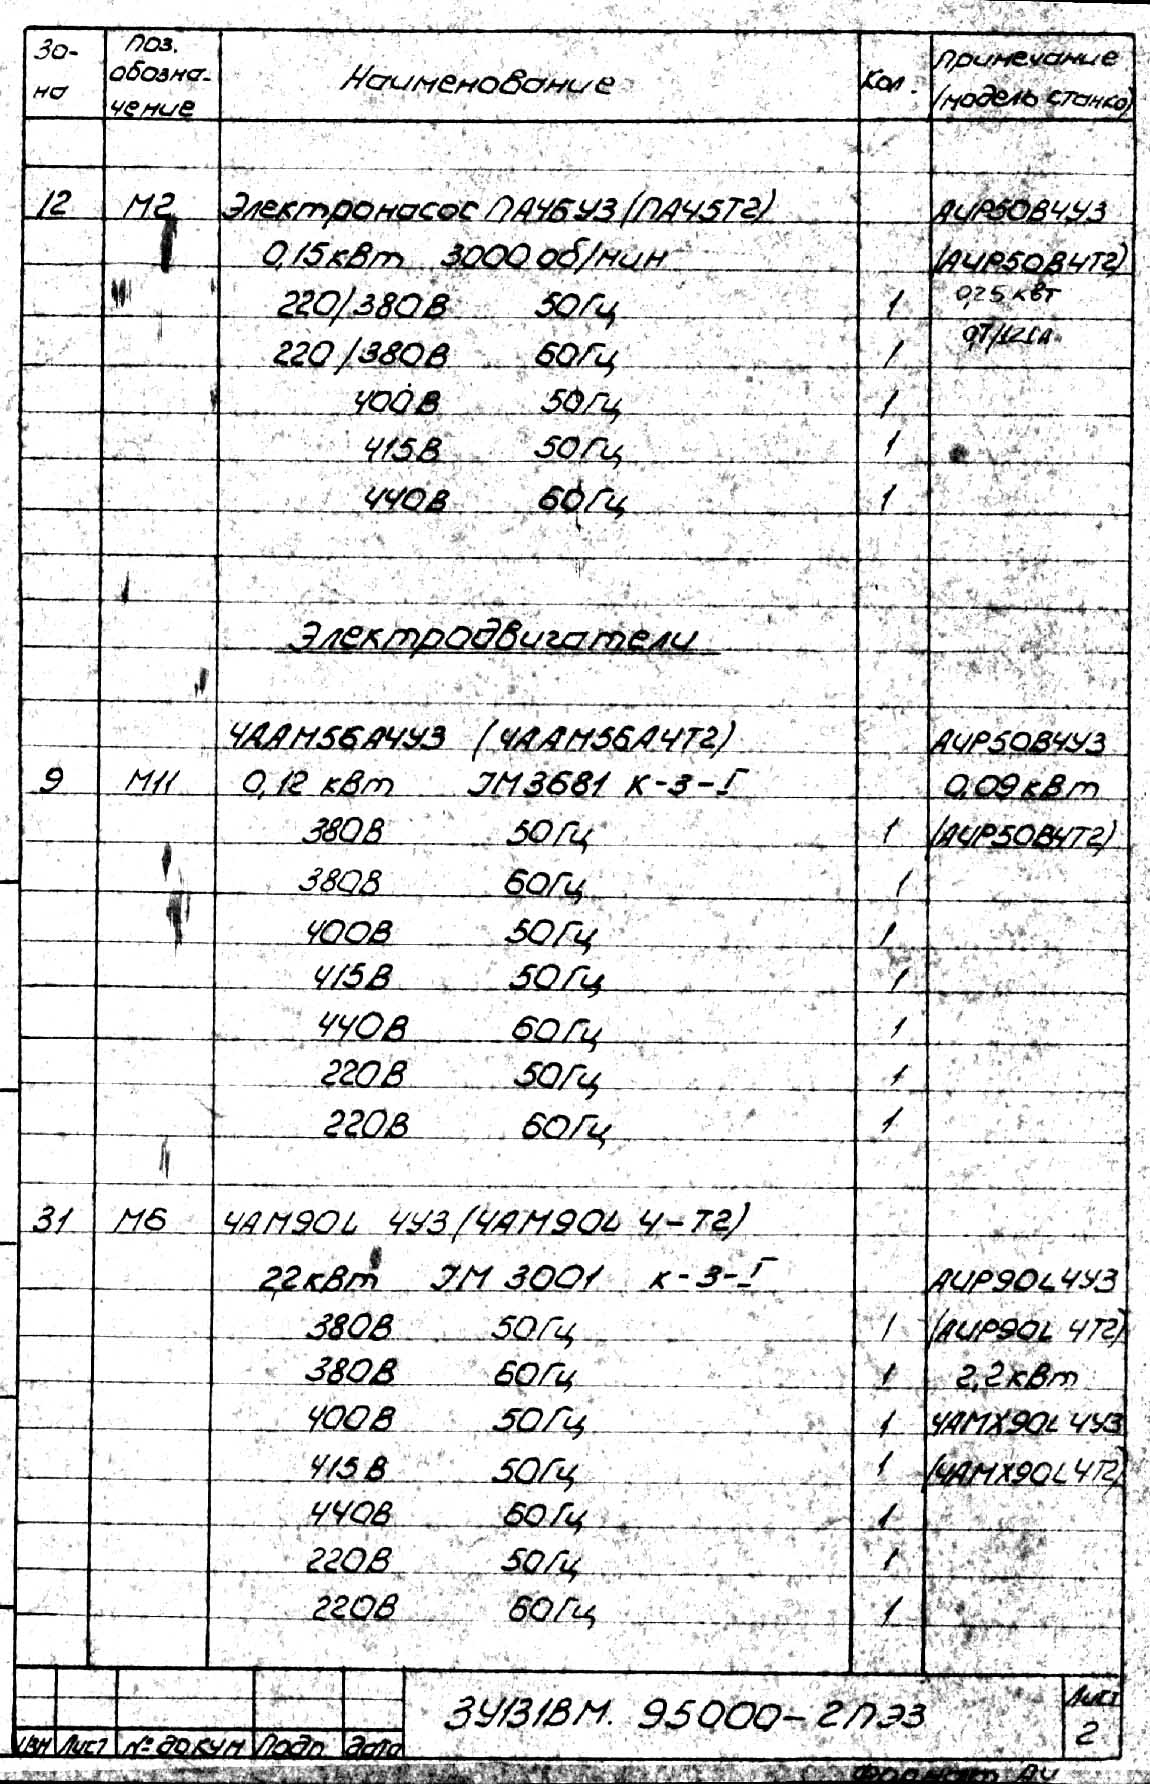 Зо-
на
поз.
обозна-
чение
Наименование
Кол.
Примечание
(модель станка)
12 М2 Электронасос ПА45У3 (ПА45Т2) АИР50В4У3
0,15 кВт 3000 об/мин (АИР50В4Т2)
220/380В 50Гц 1 0,25 кВт
220/380В 60Гц 1
400В 50Гц 1
415В 50Гц 1
440В 60Гц 1
Электродвигатели
4ААМ56А4У3 (4ААМ56А4Т2) АИР50В4У3
9 М11 0,12 кВт IМ3681 к-3-I 0,09 кВт
380В 50Гц 1 (АИР50В4Т2)
380В 60Гц 1
400В 50Гц 1
415В 50Гц 1
440В 60Гц 1
220В 50Гц 1
220В 60Гц 1
31 М6 4АМ90L 4У3 (4АМ90L 4-Т2)
2,2 кВт IМ 3001 к-3-I АИР90L4У3
380В 50Гц 1 (АИР90L 4Т2)
380В 60Гц 1 2,2 кВт
400В 50Гц 1 4АМХ90L 4У3
415В 50Гц 1 (4АМХ90L4Т2)
440В 60Гц 1
220В 50Гц 1
220В 60Гц 1
3У131ВМ. 95000-2ПЭ3
Лист
2
Изм Лист № докум Подп. Дата
Формат А4